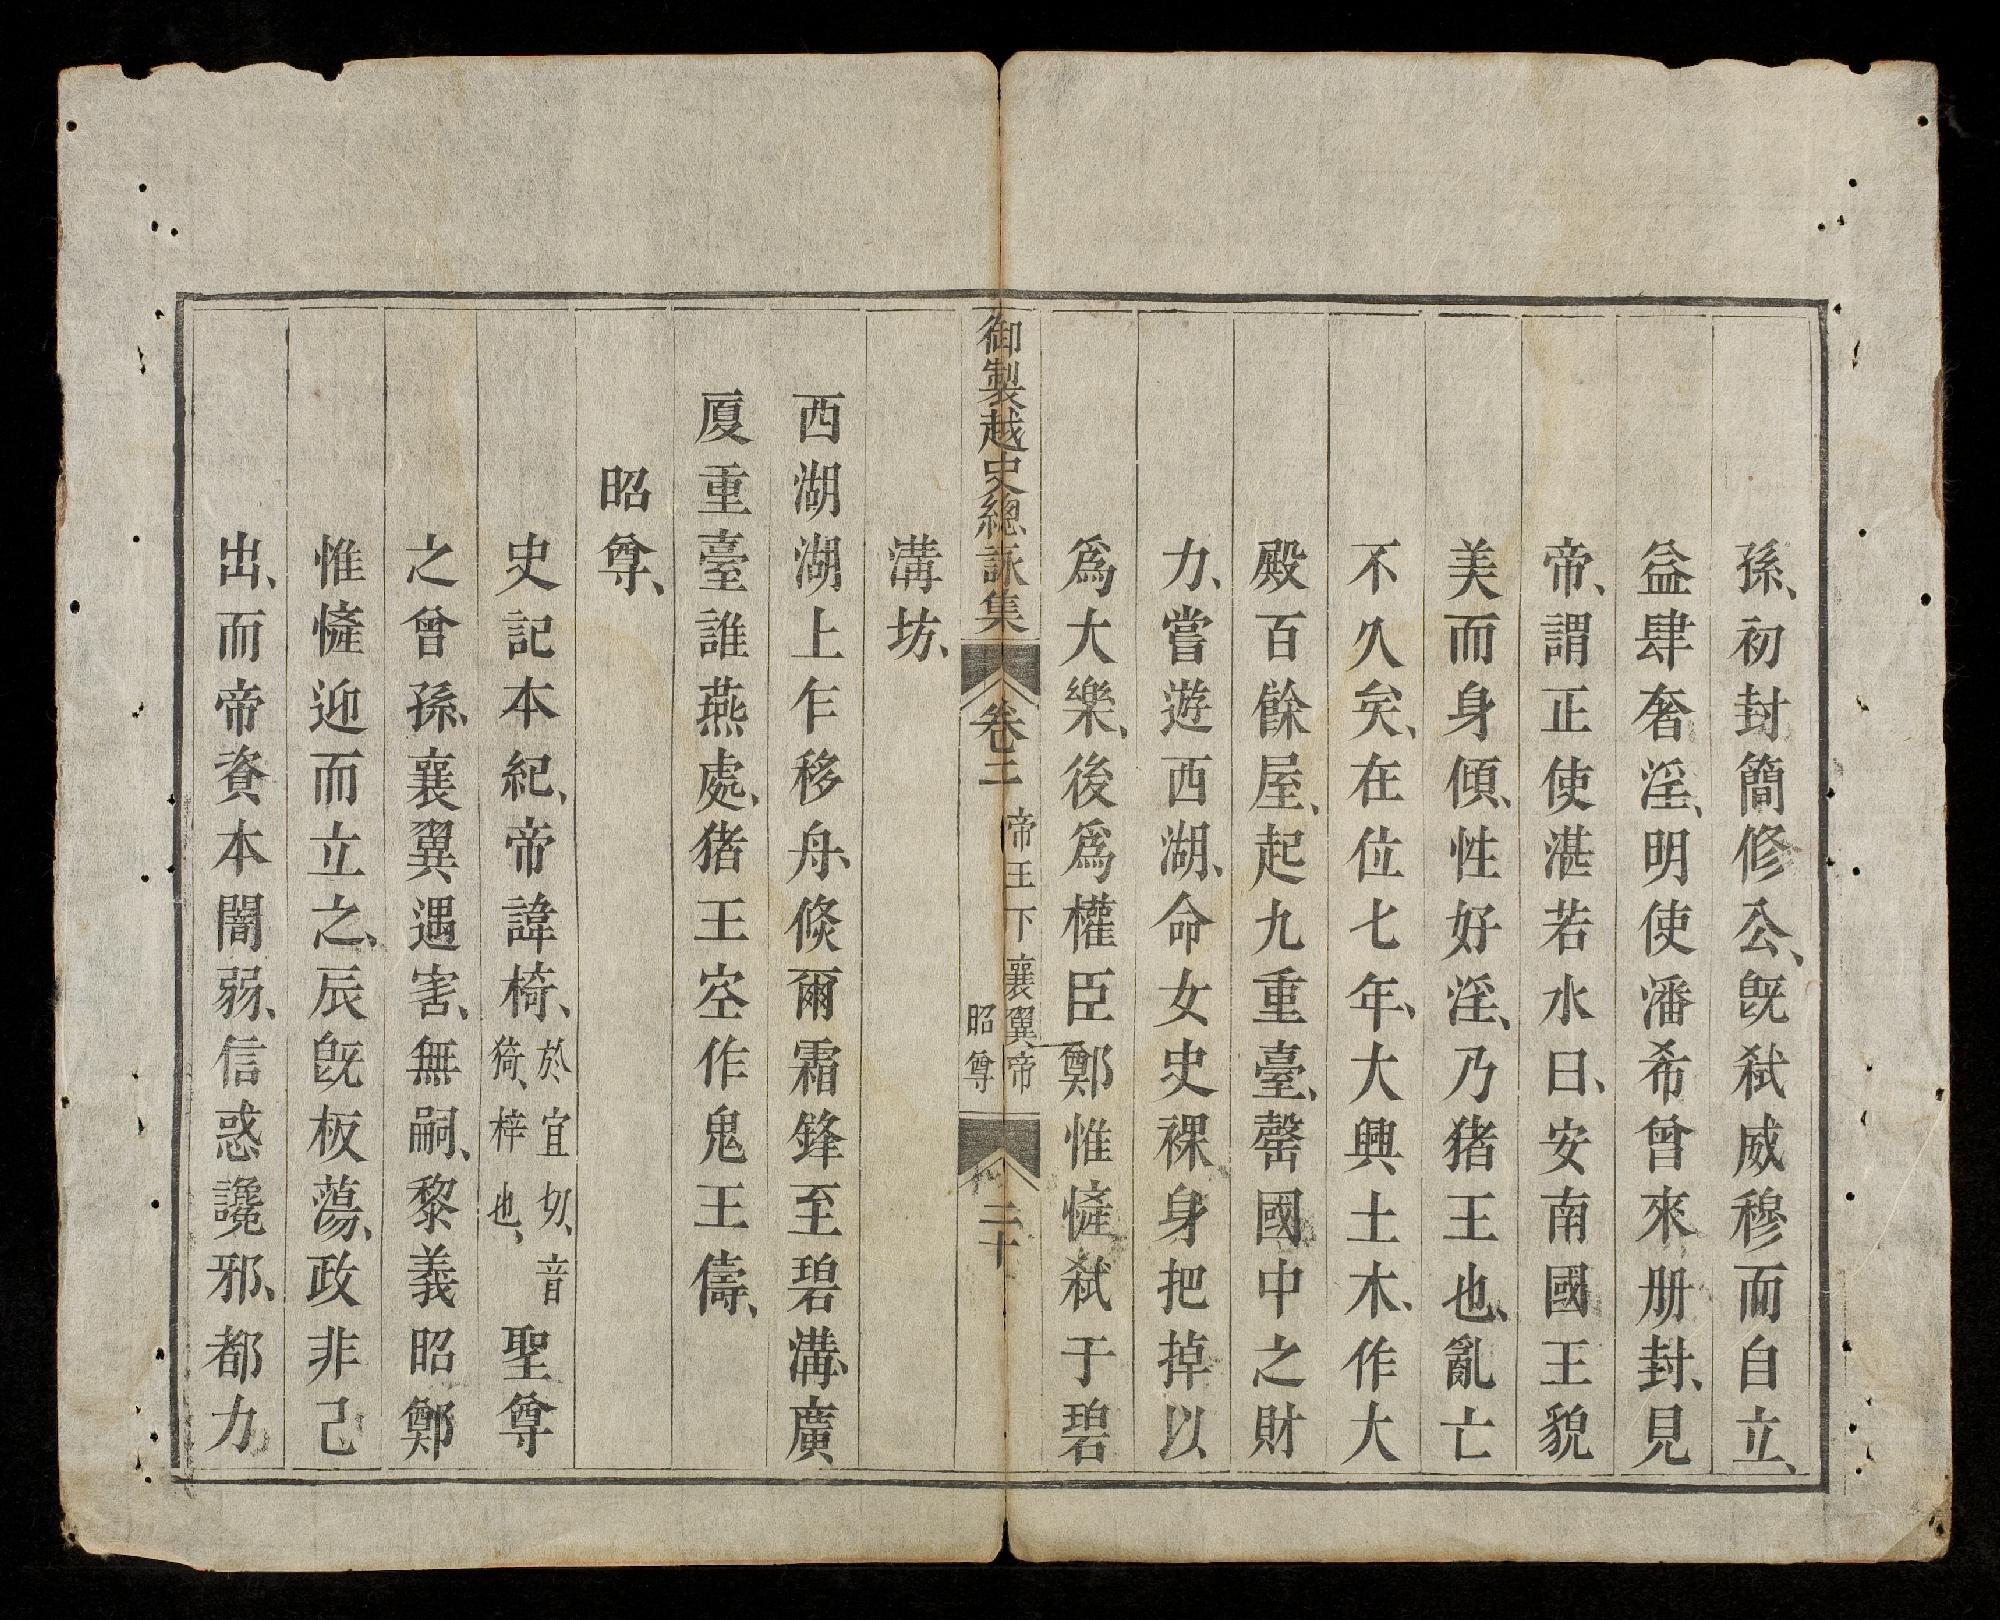 孫、初封簡修公、旣弑威穆而自立、
益肆奢淫、明使潘希曾來册封、見
帝、謂正使湛若水曰、安南國王貌
美而身傾、性好淫、乃猪王也、亂亡
不久矣、在位七年、大興土木、作大
殿百餘屋、起九重臺、罄國中之財
力、嘗遊西湖、命女史裸身把掉以
爲大樂、後爲權臣鄭惟㦃弑于碧
御製越史總詠集 卷二 帝王下 襄翼帝 昭尊 二十
溝坊、
西湖湖上乍移舟、倐爾霜鋒至碧溝、廣
厦重臺誰燕處、猪王空作鬼王儔、
昭尊、
史記本紀、帝諱椅、於宜切、音猗、梓也、聖尊
之曾孫、襄翼遇害、無嗣、黎義昭鄭
惟㦃迎而立之、辰旣板蕩、政非己
出、而帝資本闇弱、信惑讒邪、都力